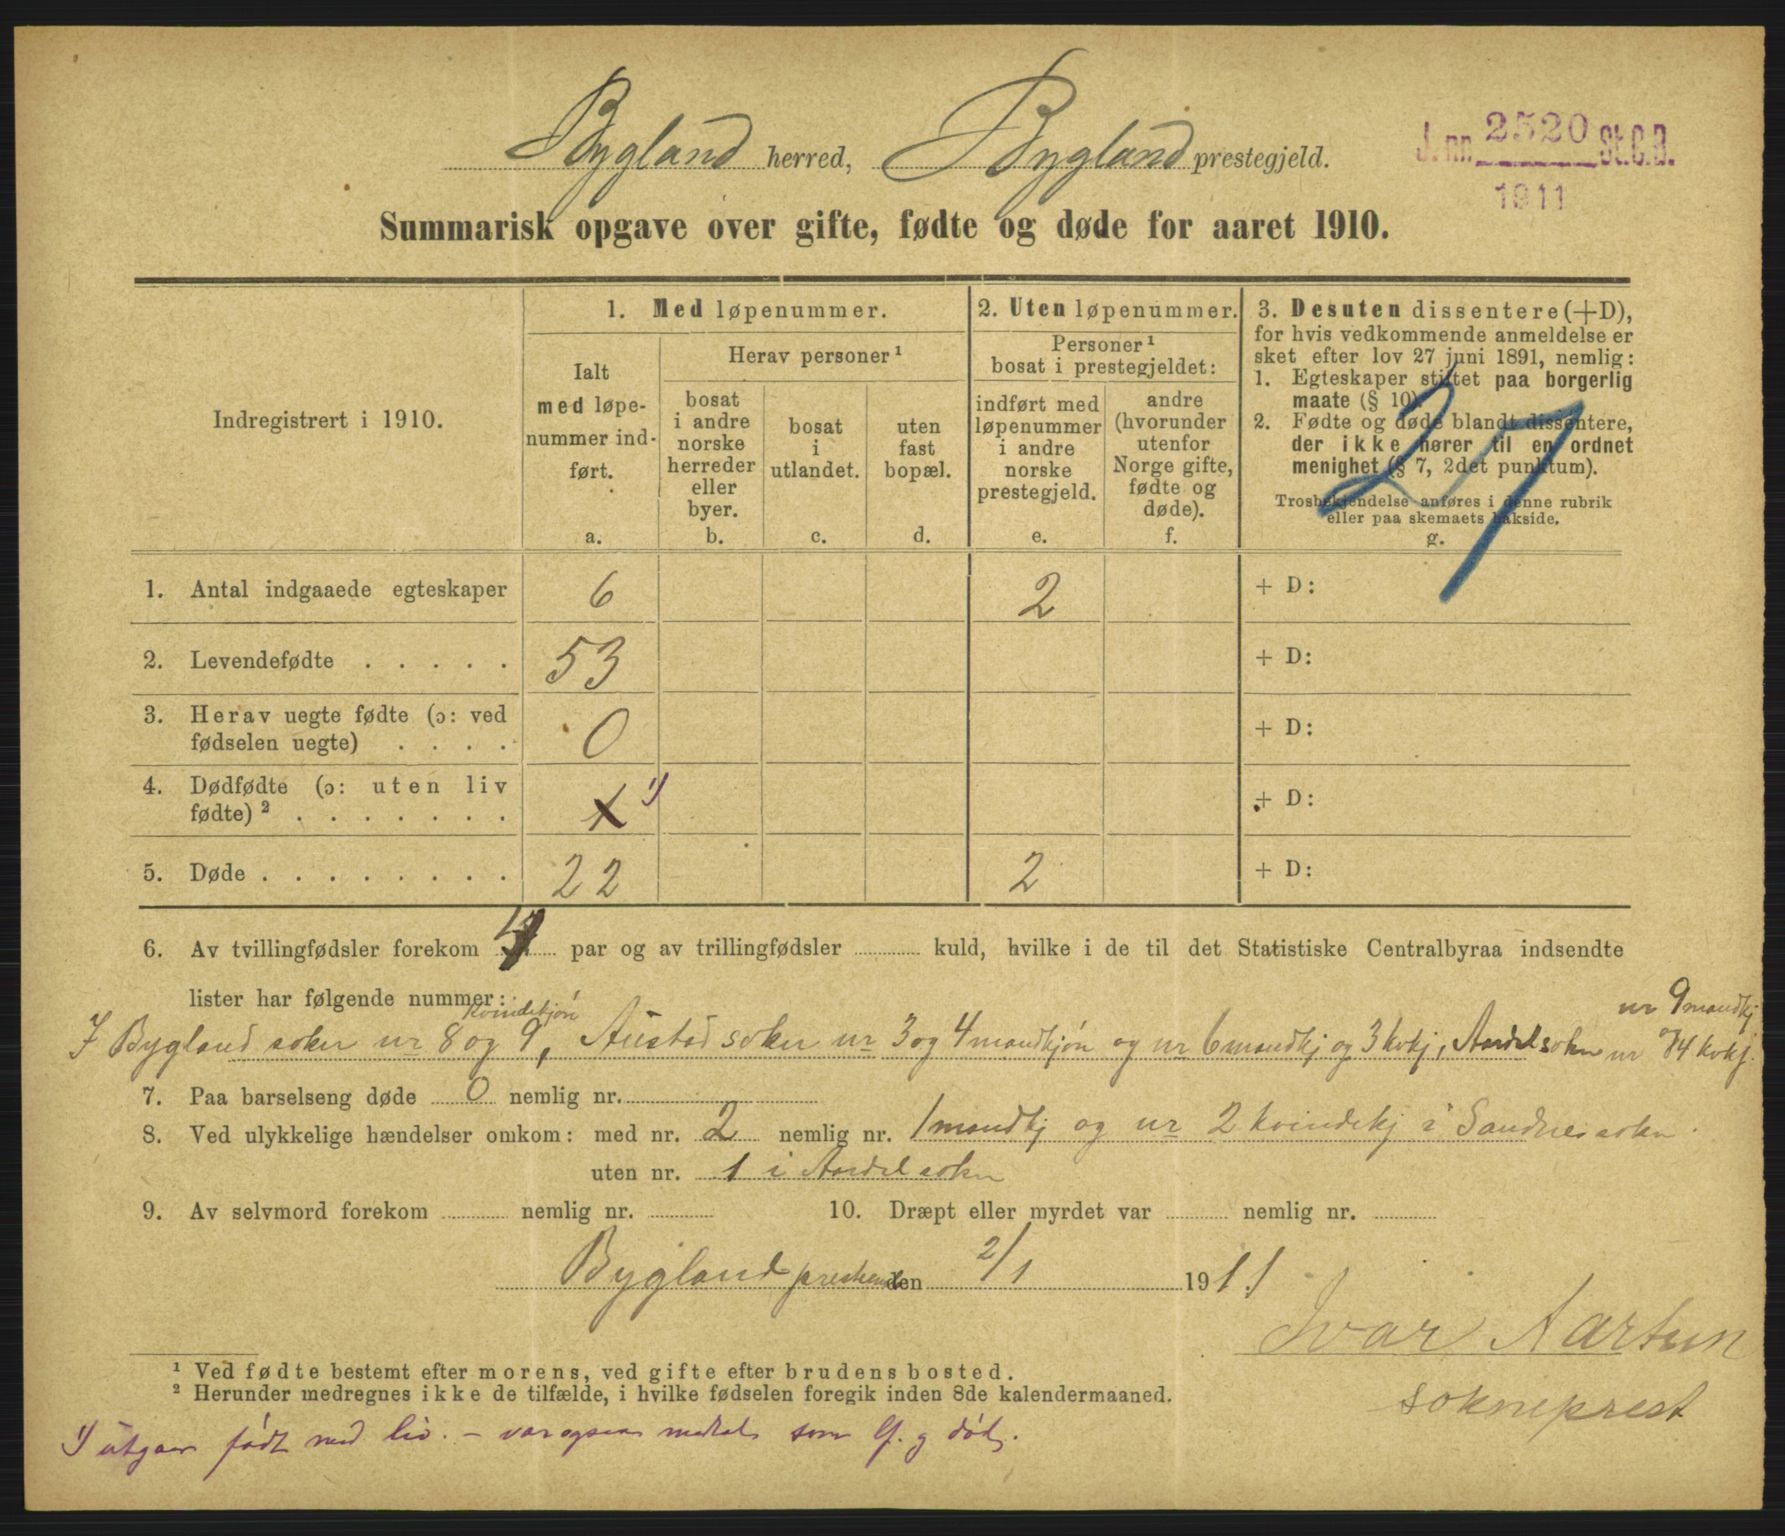 Bygland herred, Bygland prestegjeld.
J. nr. 2520 St.C.B.
1911
Summarisk opgave over gifte, fødte og døde for aaret 1910.
Indregistrert i 1910.
1. Med løpenummer.
Ialt med løpe-
nummer ind-
ført.
a.
Herav personer ¹
bosat
i andre
norske
herreder
eller
byer.
b.
bosat
i
utlandet.
c.
uten
fast
bopæl.
d.
2. Uten løpenummer.
Personer ¹
bosat i prestegjeldet:
indført med
løpenummer
i andre
norske
prestegjeld.
e.
andre
(hvorunder
utenfor
Norge gifte,
fødte og
døde).
f.
3. Desuten dissentere (+D),
for hvis vedkommende anmeldelse er
sket efter lov 27 juni 1891, nemlig:
1. Egteskaper stiftet paa borgerlig
maate (§ 10).
2. Fødte og døde blandt dissentere,
der ikke hører til en ordnet
menighet (§ 7, 2det punktum).
Trosbekjendelse anføres i denne rubrik
eller paa skemaets bakside.
g.
27
1. Antal indgaaede egteskaper 6 2 + D:
2. Levendefødte . . . . . 53 + D:
3. Herav uegte fødte (ɔ: ved
fødselen uegte) . . . . 0 + D:
4. Dødfødte (ɔ: uten liv
fødte) ² . . . . . . . 1) + D:
5. Døde . . . . . . . . 22 2 + D:
6. Av tvillingfødsler forekom 4 par og av trillingfødsler kuld, hvilke i de til det Statistiske Centralbyraa indsendte
lister har følgende nummer:
I Bygland sokn nr 8 og 9 kvindekjón, Austad sokn nr 3 og 4 mandkjón og nr 6 mandkj og 3 kvkj, Aardal sokn nr 9 mandkj
og 4 kvkj.
7. Paa barselseng døde 0 nemlig nr.
8. Ved ulykkelige hændelser omkom: med nr. 2 nemlig nr. 1 mandkj og nr 2 kvindekj i Sandnes sokn.
uten nr. 1 i Aardal sokn
9. Av selvmord forekom nemlig nr. 10. Dræpt eller myrdet var nemlig nr.
Bygland den 2/1 1911
Ivar Aartun
sokneprest
¹ Ved fødte bestemt efter morens, ved gifte efter brudens bosted.
² Herunder medregnes ikke de tilfælde, i hvilke fødselen foregik inden 8de kalendermaaned.
1) utgaar født med liv. – var ogsaa medtat som lf. og død.